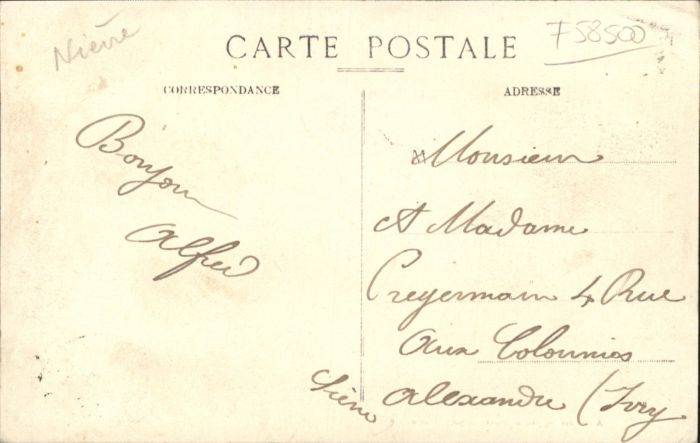 Nièvre
F 58500
CARTE POSTALE
CORRESPONDANCE
ADRESSE
Bonjour
Alfred
Monsieur
et Madame
4 Rue
aux Colonnies
Alexandre (Ivry
Seine